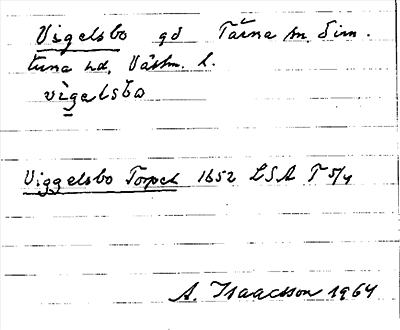 Vigelsbo gd Tärna sn. Sim.
tuna hd, Västm. l.
vìgəlsbo
Viggelsbo Torpet 1652 LSA T 5/4
A. Isaacsson 1964